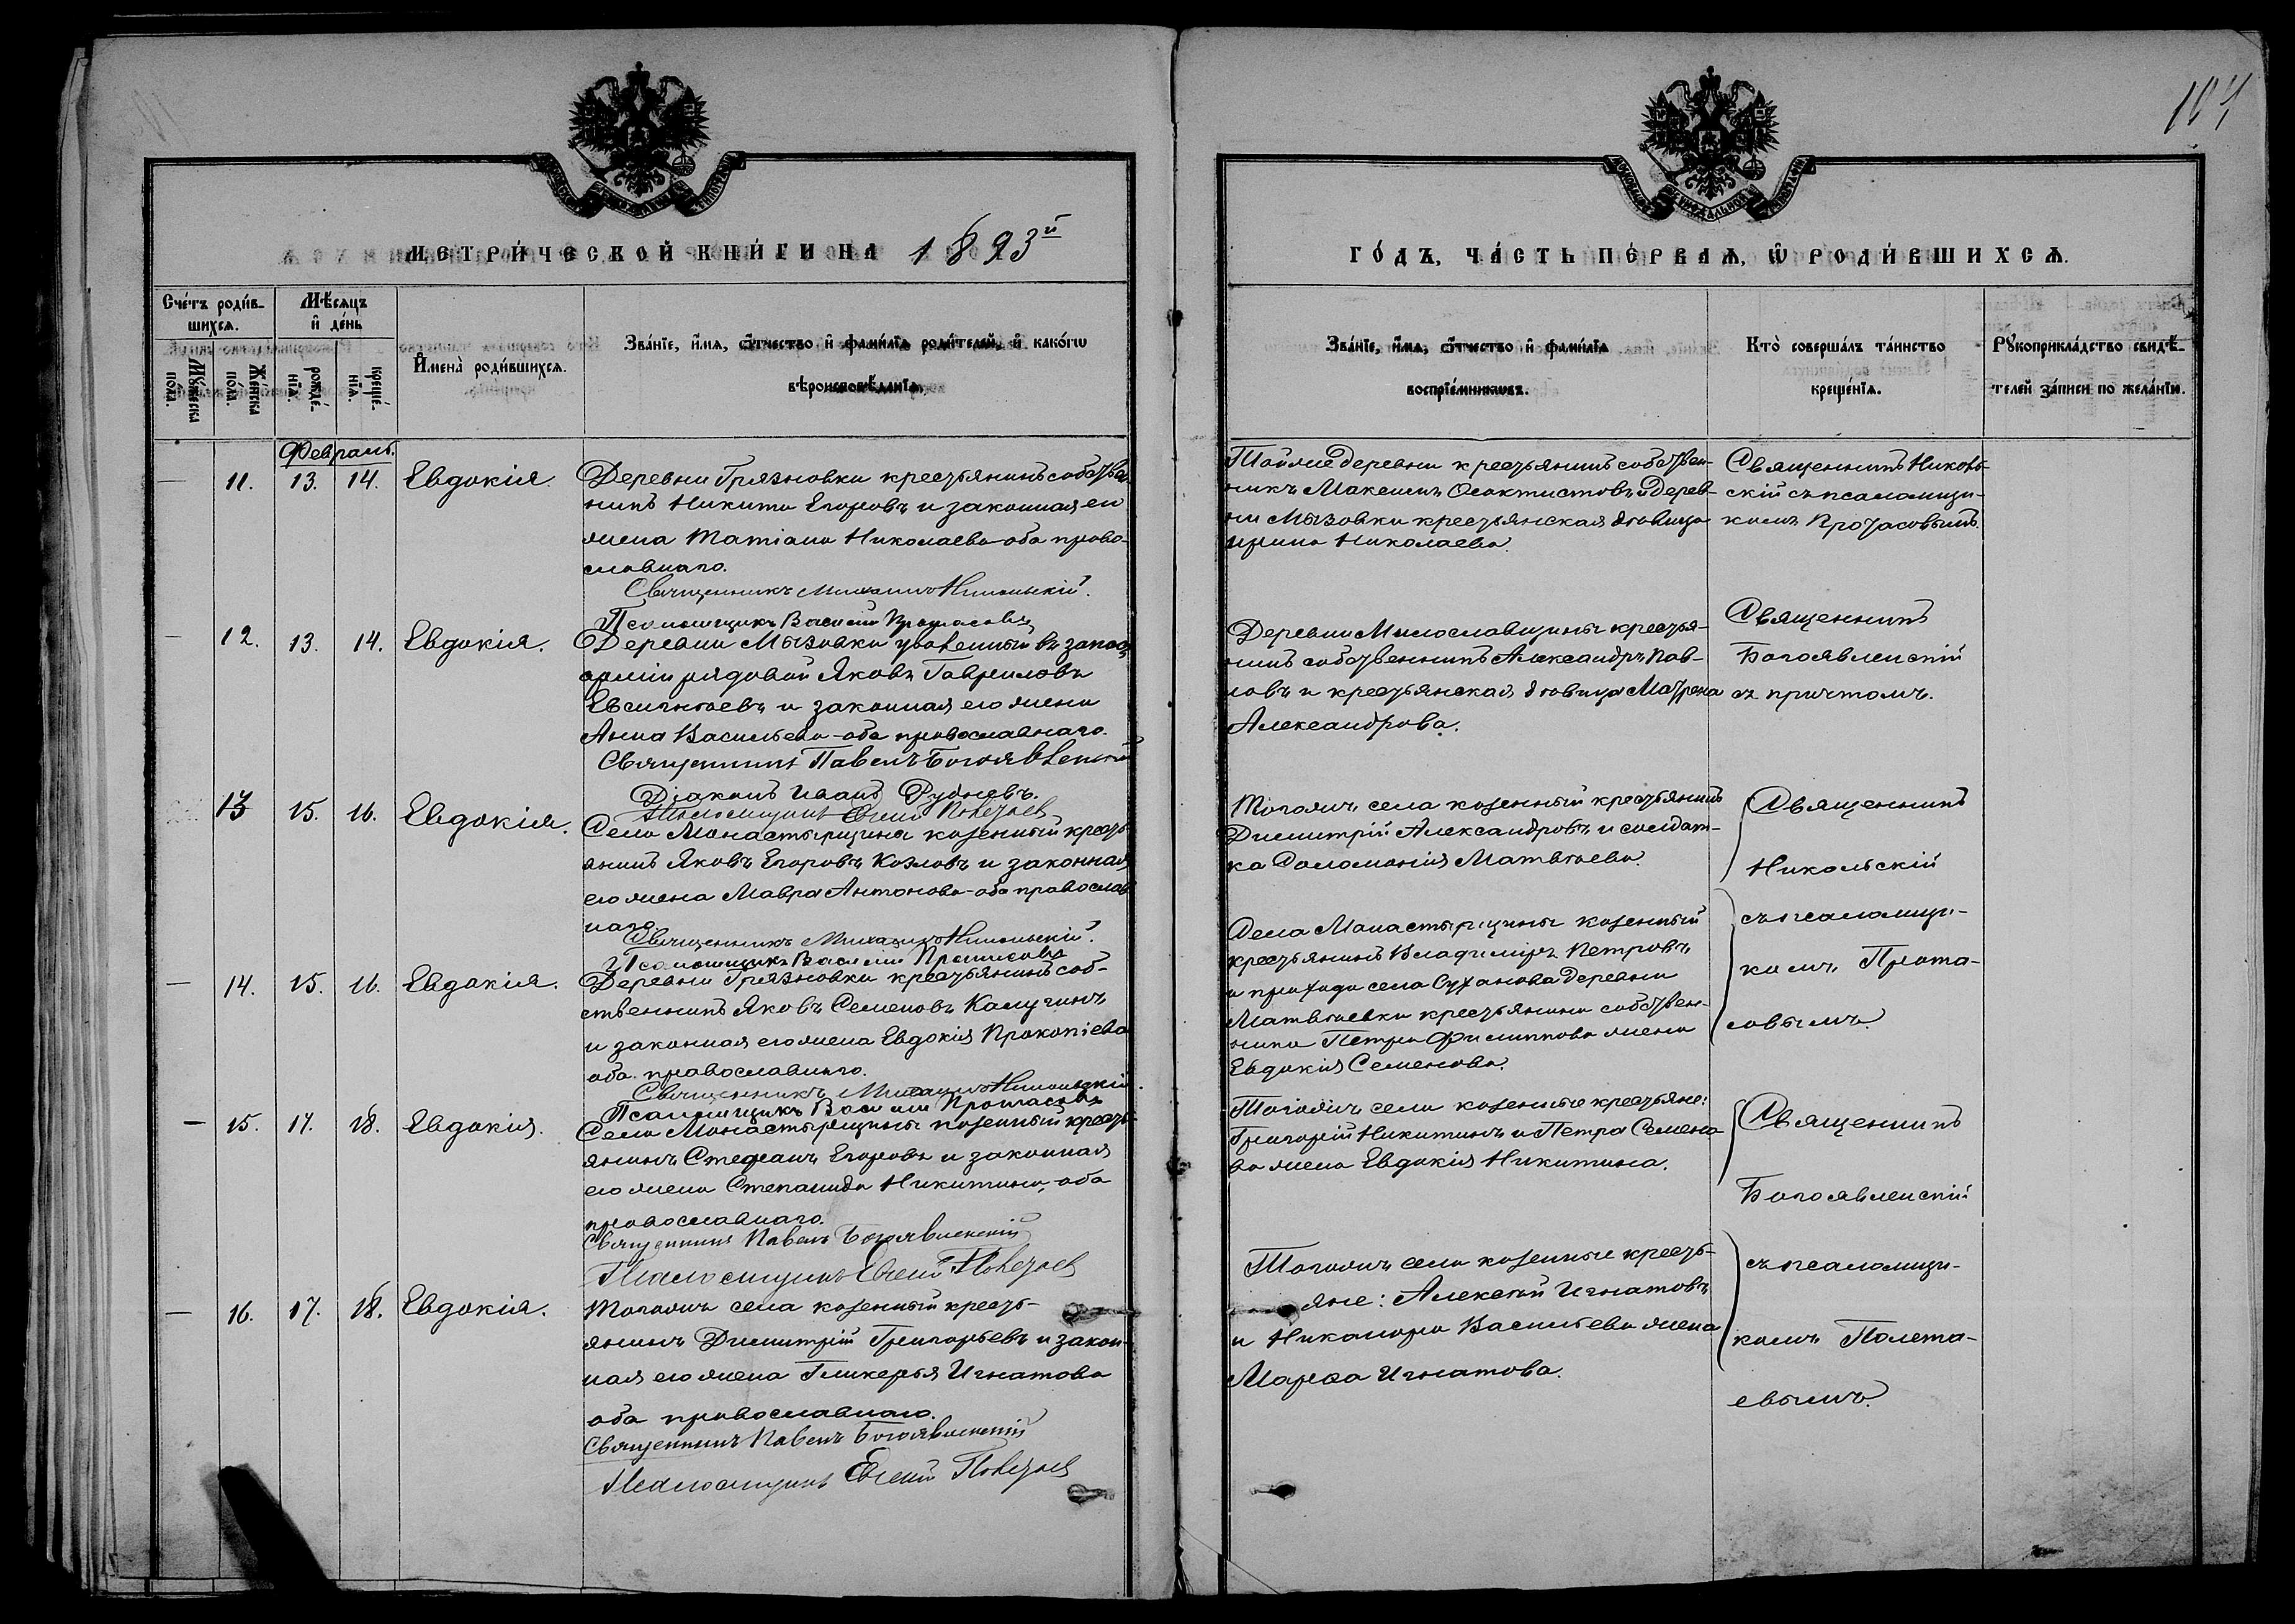 104
МЕТРИЧЕСКОЙ КНИГИ НА 1893й
ГОДЪ, ЧАСТЬ ПЕРВАЯ, Ѡ РОДИВШИХСЯ.
Счетъ родив-
шихся.
Мѣсяцъ
и день
Мужеска
пола.
Женска
пола.
рожде-
нїя.
креще-
нїя.
Имена родившихся.
Званїе, имя, отчество и фамилїя родителей, и какогѡ
вѣроисповѣданїя.
Званїе, имя, отчество и фамилїя
воспрїемникѡвъ.
Кто совершалъ таинство
крещенїя.
Рꙋкоприкладство свидѣ-
телей записи по желанїю.
Февраль.
— 11. 13. 14. Евдокія.
Деревни Грязновки крестьянинъ собствен-
никъ Никита Егоровъ и законная его
жена Татіана Николаева оба право-
славнаго.
Священникъ Михаилъ Никольскій.
Псаломщикъ Василій Протасовъ
Тойже деревни крестьянинъ собствен-
никъ Максимъ Ѳеоктистовъ и дерев-
ни Мызовки крестьянская дѣвица
Ирина Николаева.
Священникъ Николь-
скій съ псаломщи-
комъ Протасовымъ.
— 12. 13. 14. Евдокія.
Деревни Мызовки уволенный въ запас
арміи рядовой Яковъ Гавриловъ
Евсигнѣевъ и законная его жена
Анна Васильева - оба православнаго.
Священникъ Павелъ Богоявленскій
Діаконъ Иванъ Рудневъ.
Псаломщикъ
Деревни Милославщины крестья-
нинъ собственникъ Александръ Пав-
ловъ и крестьянская дѣвица Матрона
Александрова.
Священникъ
Богоявленскій
съ причтомъ.
13 15. 16. Евдокія.
Села Монастырщина казенный кресть-
янинъ Яковъ Егоровъ Козловъ и законная
его жена Мавра Антонова - оба православ
наго.
Священникъ Михаилъ Никольскій.
Псаломщикъ Василій Протасовъ
Тогожъ села казенный крестьянинъ
Димитрій Александровъ и солдат-
ка Соломонія Матвѣева.
Священникъ
Никольскій
— 14. 15. 16. Евдокія.
Деревни Грязновки крестьянинъ соб-
ственникъ Яковъ Семеновъ Калугинъ
и законная его жена Евдокія Прокопіева
оба православнаго.
Священникъ Михаилъ Никольскій.
Псаломщикъ Василій Протасовъ
Села Монастырщины казенный
крестьянинъ Владиміръ Петровъ
и прихода села Суханова деревни
Матвѣевки крестьянина собствен-
ника Петра Филиппова жена
Евдокія Семенова.
съ псаломщи-
комъ Прота-
совымъ.
— 15. 17. 18. Евдокія.
Села Монастырщины казенный кресть-
янинъ Стефанъ Егоровъ и законная
его жена Степанида Никитина, оба
православнаго.
Священникъ Павелъ Богоявленскій
Псаломщикъ
Тогожъ села казенные крестьяне:
Григорій Никитинъ и Петра Семено-
ва жена Евдокія Никитина.
Священникъ
Богоявленскій
— 16. 17. 18. Евдокія.
Тогожъ села казенный кресть-
янинъ Димитрій Григорьевъ и закон-
ная его жена Гликерья Игнатова
оба православнаго.
Священникъ Павелъ Богоявленскій
Псаломщикъ
Тогожъ села казенные кресть-
яне: Алексѣй Игнатовъ
и Никанора Васильева жена
Марѳа Игнатова.
съ псаломщи-
комъ Полета-
евымъ.